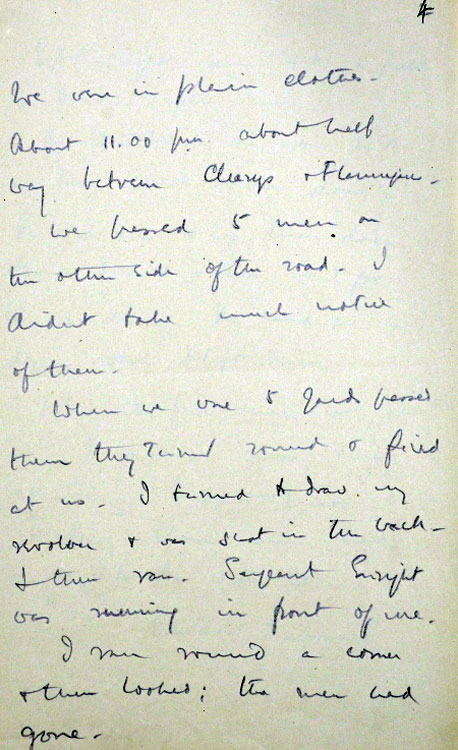 4
We were in plain clothes -
About 11.00 p.m. about half
way between Clearys & Flannigans -
We passed 5 men on
the other side of the road. I
didnt take much notice
of them -
When we were 5 yards passed
them they turned round & fired
at us - I turned to draw my
revolver & was shot in the back -
I then ran. Sergeant Enright
was running in front of me.
I ran round a corner
& then looked; the men had
gone -